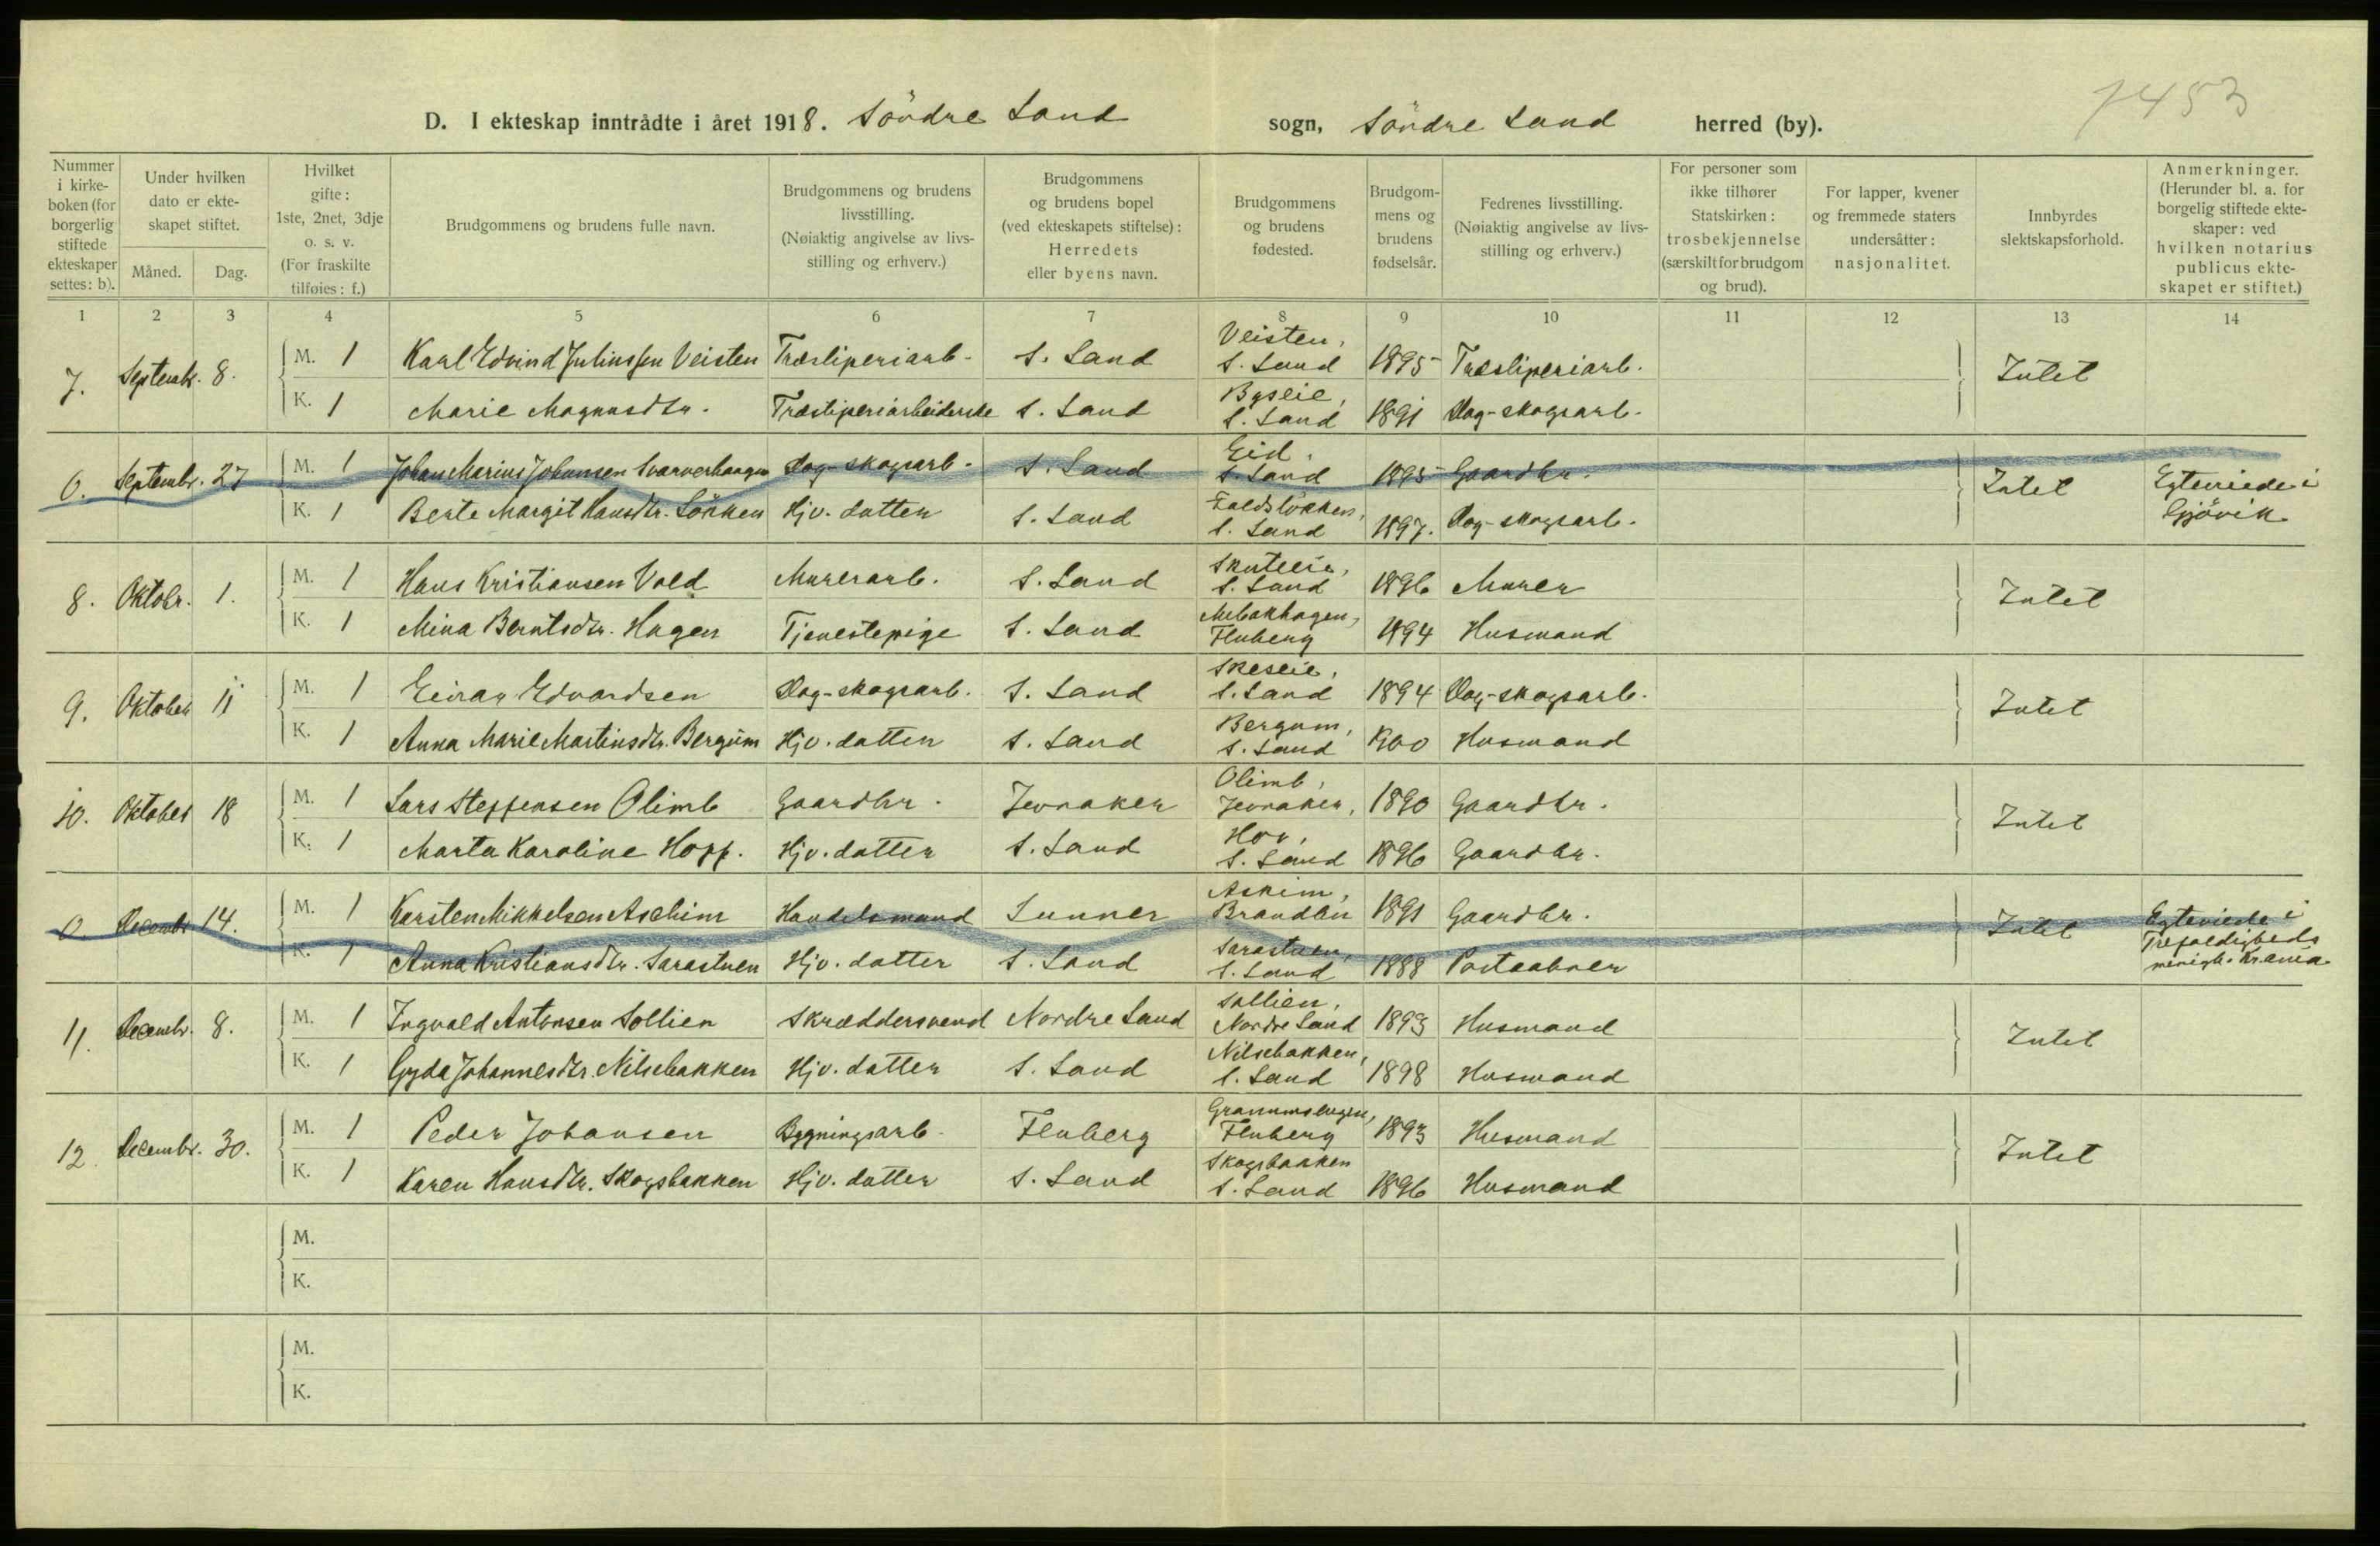 1453
D. I ekteskap inntrådte i året 1918. Söndre Land sogn, Söndre Land herred (by).
Nummer i kirkeboken (for borgerlig stiftede ekteskaper settes: b).
Under hvilken dato er ekteskapet stiftet.
Måned. Dag.
Hvilket gifte: 1ste, 2net, 3dje o. s. v. (For fraskilte tilføies: f.)
Brudgommens og brudens fulle navn.
Brudgommens og brudens livsstilling. (Nøiaktig angivelse av livsstilling og erhverv.)
Brudgommens og brudens bopel (ved ekteskapets stiftelse): Herredets eller byens navn.
Brudgommens og brudens fødested.
Brudgommens og brudens fødselsår.
Fedrenes livsstilling. (Nøiaktig angivelse av livsstilling og erhverv.)
For personer som ikke tilhører Statskirken: trosbekjennelse (særskilt for brudgom og brud).
For lapper, kvener og fremmede staters undersåtter: nasjonalitet.
Innbyrdes slektskapsforhold.
Anmerkninger. (Herunder bl. a. for borgelig stiftede ekteskaper: ved hvilken notarius publicus ekteskapet er stiftet.)
1 2 3 4 5 6 7 8 9 10 11 12 13 14
7. Septembr. 8. M. 1 Karl Edvind Juliussen Veisten Træsliperiarb. S. Land Veisten, S. Land 1895 Træsliperiarb. Intet
K. 1 Marie Magnusdtr. Træsliperiarbeiderske S. Land Byseie, S. Land 1891 Dag-skogsarb.
0. Septembr. 27 M. 1 Johan Marius Johansen Svarverhaagen Dag-skogsarb. S. Land Eid. S. Land 1895 Gaardbr. Intet Egteviede i Gjövik
K. 1 Berte Margit Hansdtr. Lökken Hjv. datter S. Land Faldslökken, S. Land 1897. Dag-skogsarb.
8. Oktobr. 1. M. 1 Hans Kristiansen Vold Murerarb. S. Land Skuteeie, S. Land 1896 Murer Intet
K. 1 Mina Berntsdtr. Hagen Tjenestepige S. Land Mebakhagen, Fluberg 1894 Husmand
9. Oktober 11 M. 1 Einar Edvardsen Dag-skogsarb. S. Land Skeseie, S. Land 1894 Dag-skogsarb. Intet
K. 1 Anna Marie Martinsdtr. Bergum Hjv. datter S. Land Bergum, S. Land 1900 Husmand
10. Oktober 18 M. 1 Lars Steffensen Olimb Gaardbr. Jevnaker Olimb, Jevnaker, 1890 Gaardbr. Intet
K. 1 Marta Karoline Hoff. Hjv. datter S. Land Hov, S. Land 1896 Gaardbr.
0. Decembr. 14. M. 1 Karsten Mikkelsen Aschim Handelsmand Lunner Askim, Brandbu 1891 Gaardbr. Intet Egteviede i Trefoldigheds menigh. Kr.ania
K. 1 Anna Kristiansdtr. Sarastuen Hjv. datter S. Land Sarastuen, S. Land 1888 Postaabner
11. Decembr. 8. M. 1 Ingvald Antonsen Sollien Skræddersvend Nordre Land Sollien, Nordre Land 1893 Husmand Intet
K. 1 Gyda Johannesdtr. Nilsebakken Hjv. datter S. Land Nilsebakken, S. Land 1898 Husmand
12. Decembr. 30. M. 1 Peder Johansen Bygningsarb. Fluberg Granumseugen, Fluberg 1893 Husmand Intet
K. 1 Karen Hansdtr. Skogsbakken Hjv. datter S. Land Skogsbakken S. Land 1896 Husmand
M.
K.
M.
K.